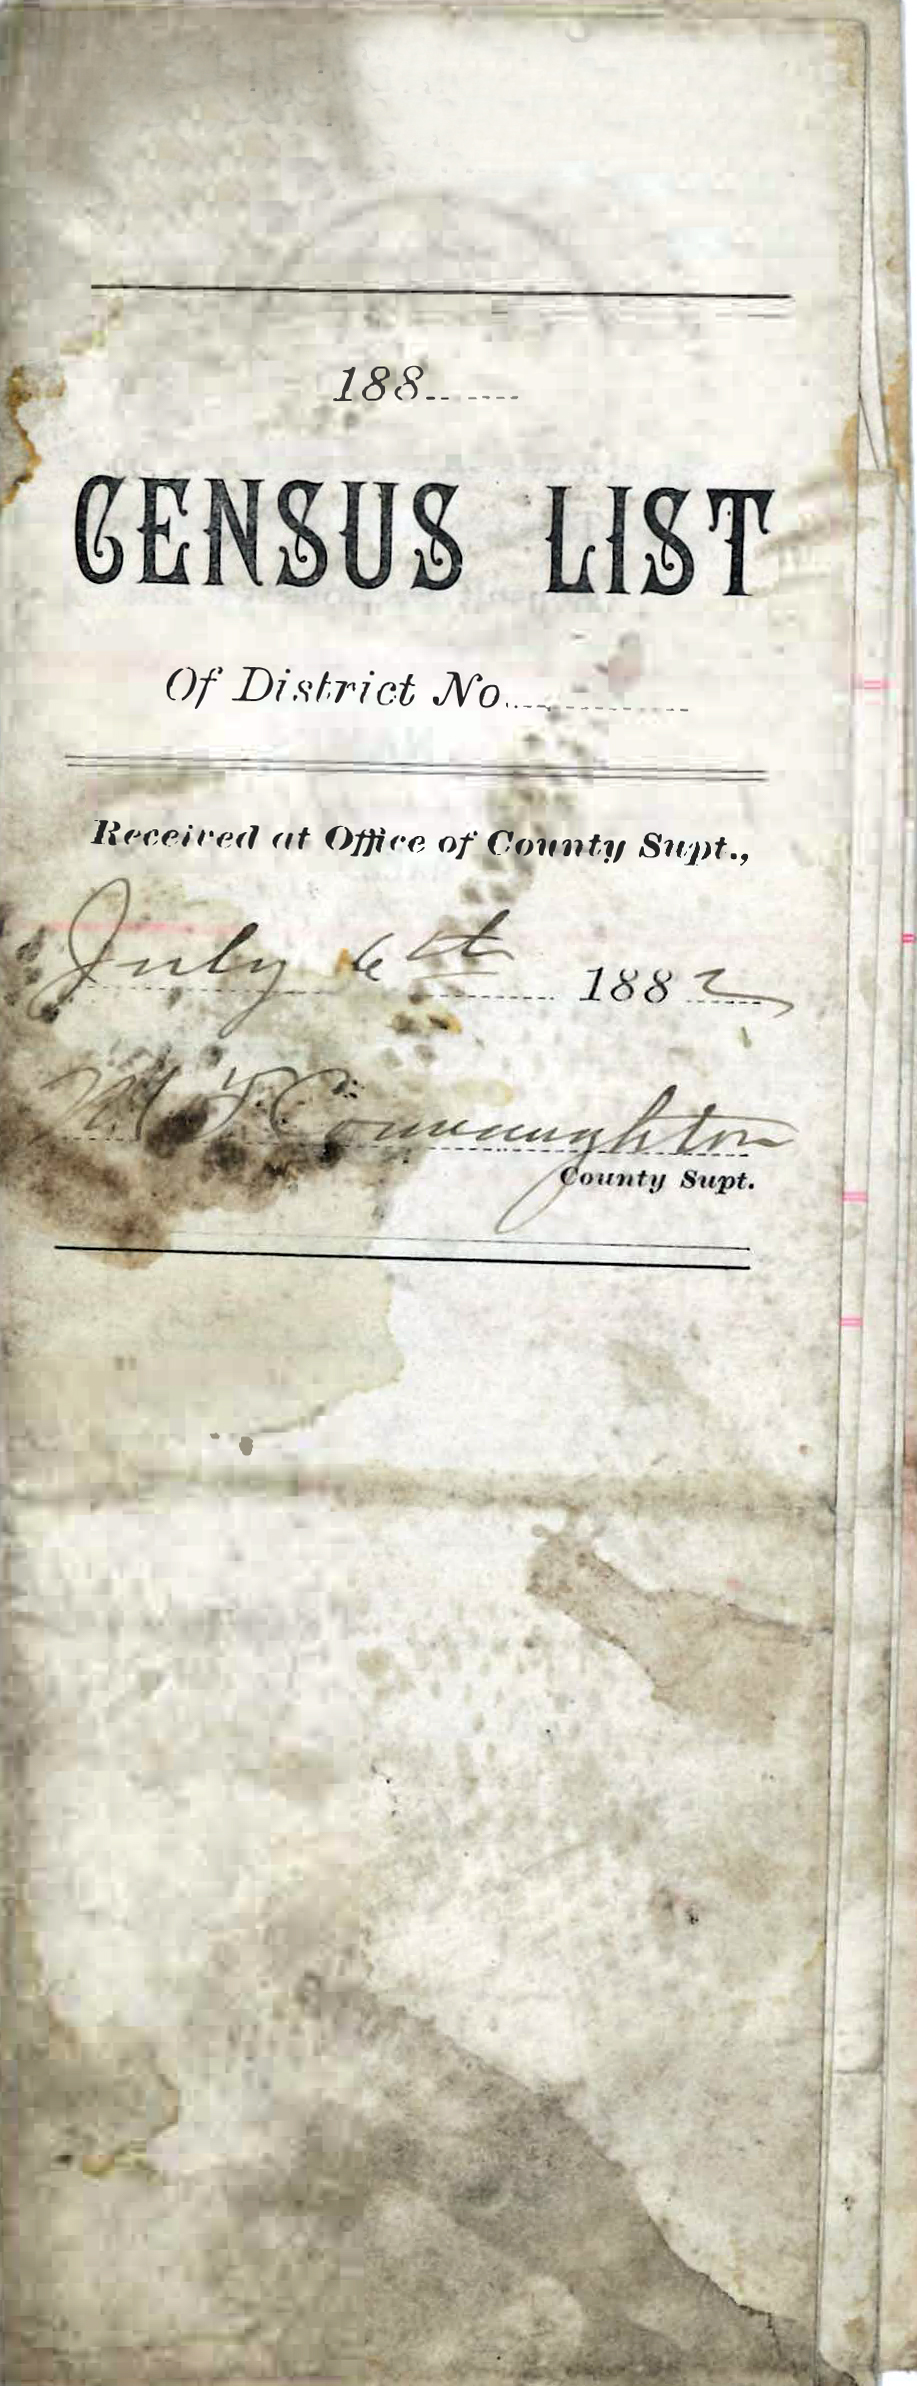 188
CENSUS LIST
Of District No.
Received at Office of County Supt.,
July 6th 1882
M F Connaughton
County Supt.